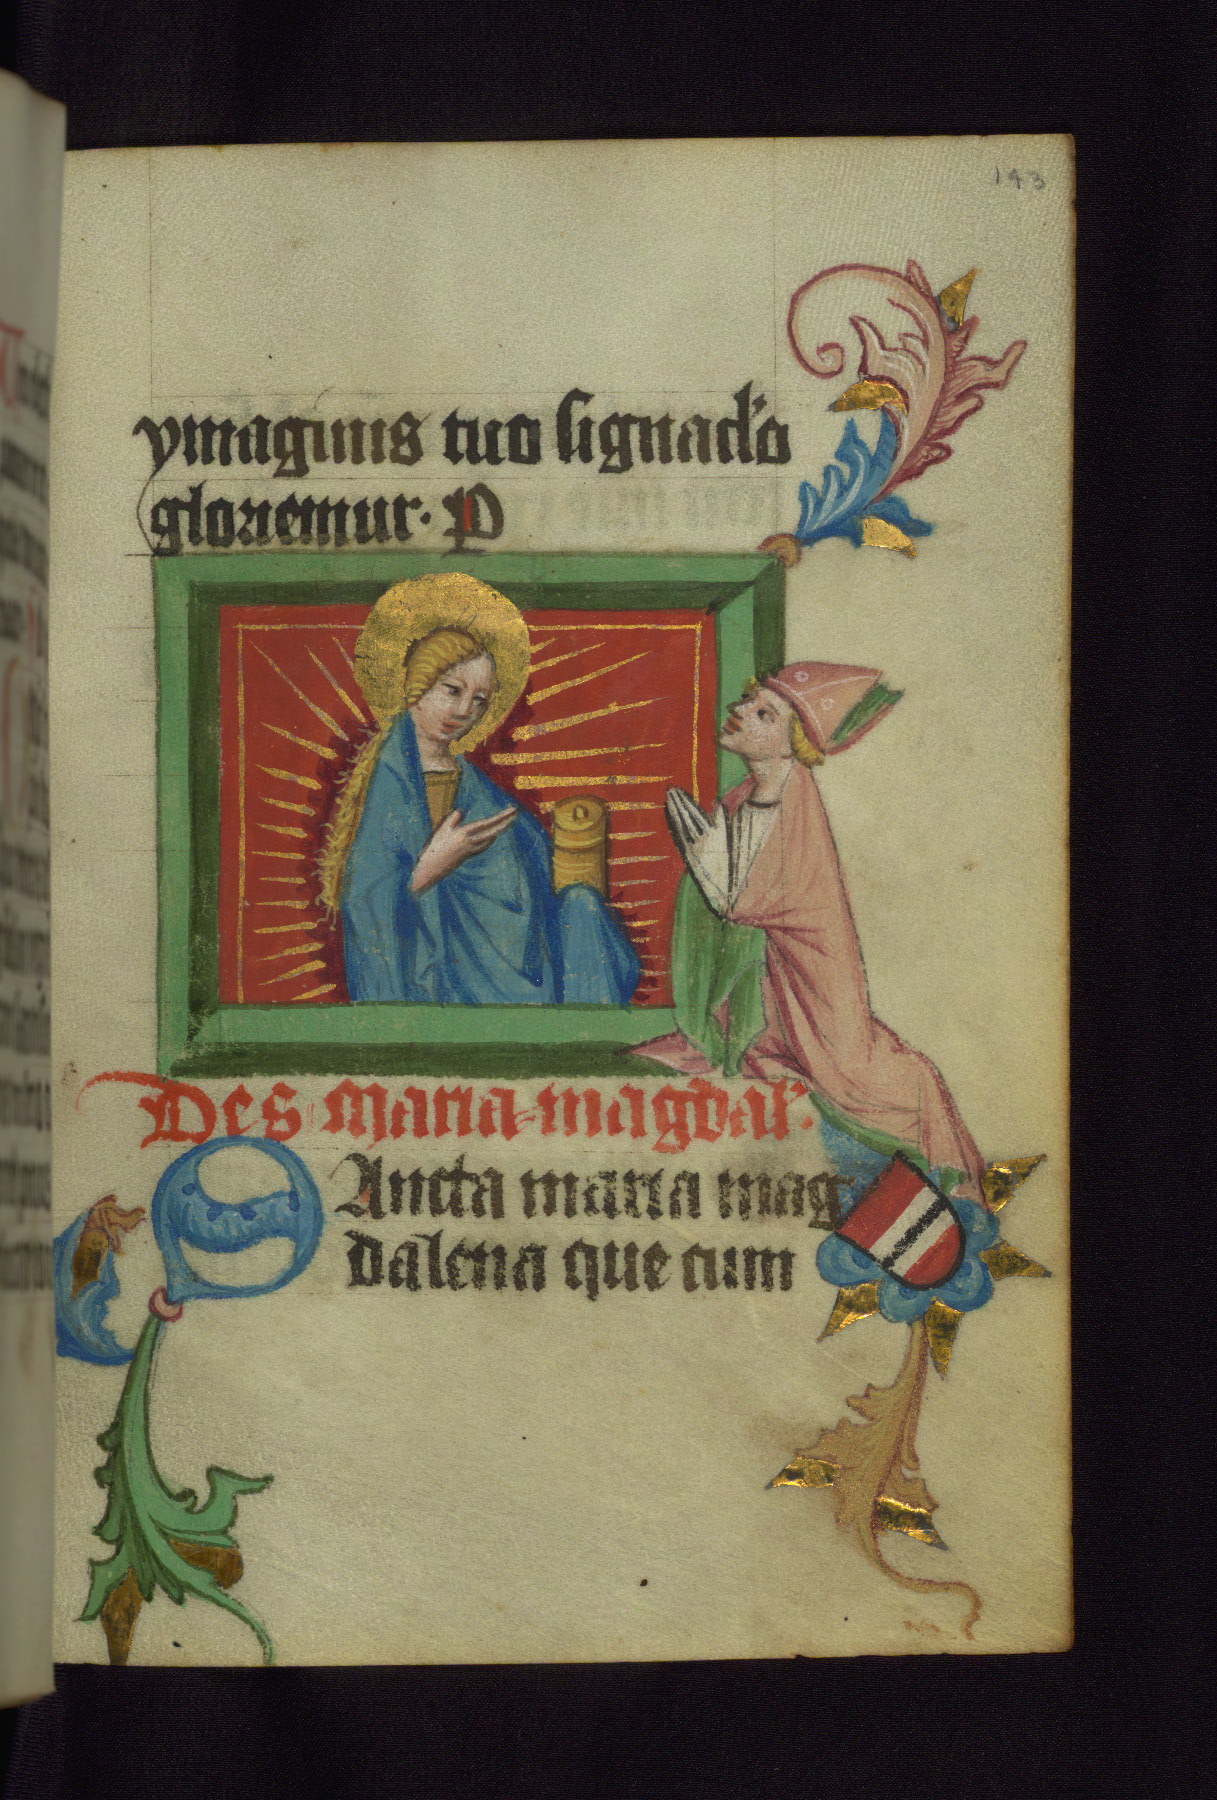 143
ymaginis tuo signac'lo
gloriemur. P
Des Maria magdal'.
SAncta maria mag
dalena que cum